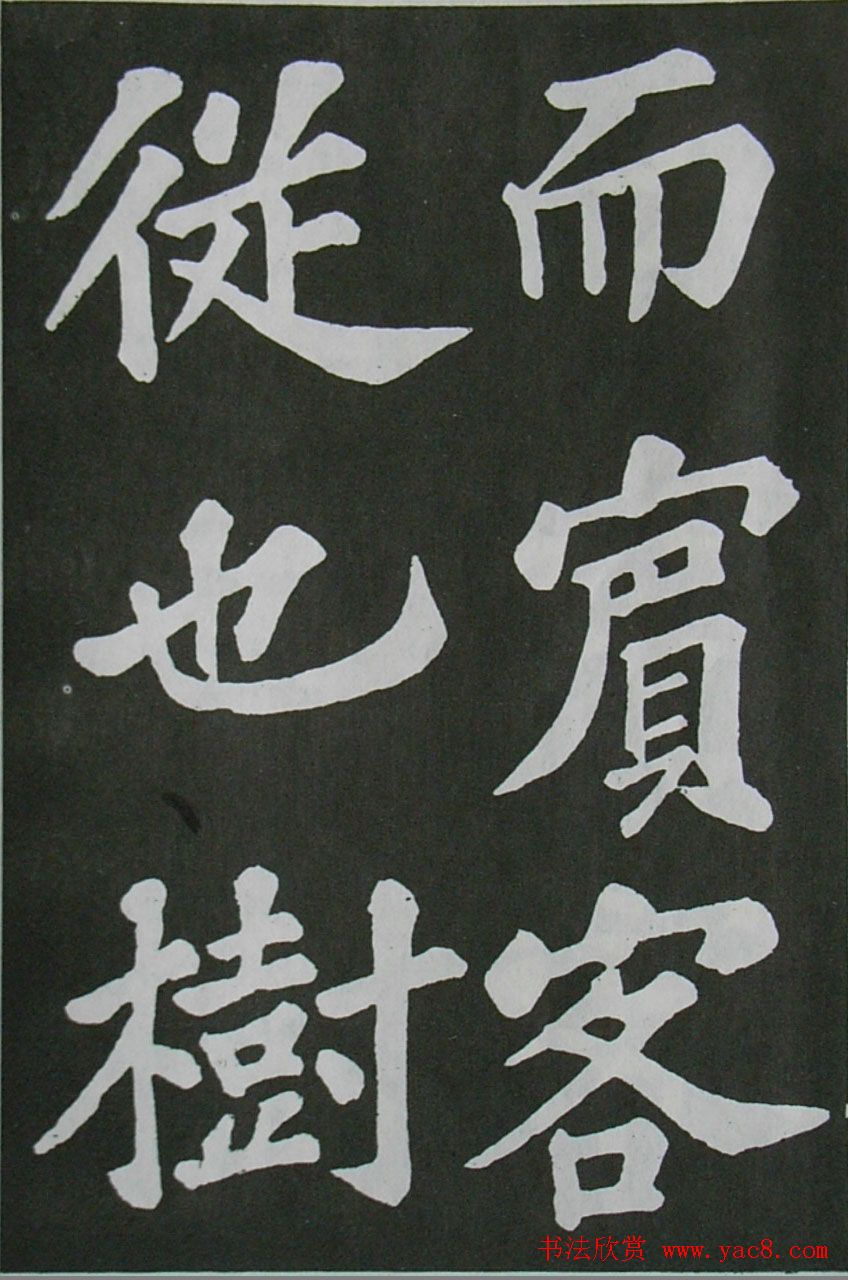 而賔客
從也樹
书法欣赏 www.yac8.com